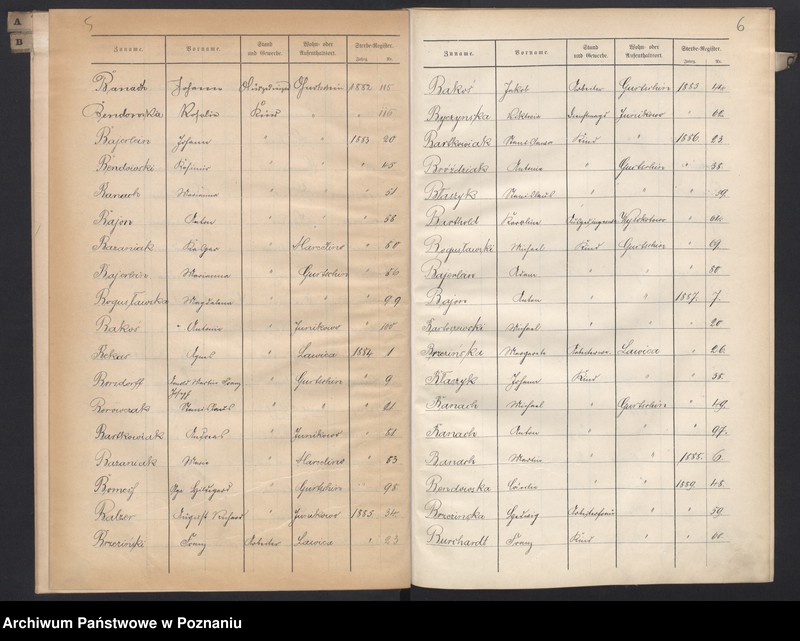 A
B
5
Zuname. Vorname Stand und Gewerbe. Wohn- oder Aufenthaltsort. Sterbe-Register. Jahrg. Nr.
Banach Johann Gurtschin 1882 115
Bendowska Rosalie Kind " " 116
Bajerlein Johann " " 1883 20
Bendowski Kasimir " " " 45
Banach Marianna " " " 51
Bajon Anton " " " 58
Baraniak Kaspar " Marcelino " 80
Bajerlein Marianna " Gurtschin " 86
Bogusławska Magdalena " " " 99
Bakoś Antonie " Junikowo " 100
Beker Agnes " Lawica 1884 1
Borsdorff Martin Franz " Gurtschin " 9
Borowczak Stanislaus " " " 21
Bartkowiak Andreas " Junikowo " 51
Baraniak Marie " Marcelino " 83
Hildegard " Gurtschin " 98
Balzer August Richard " Junikowo 1885 34
Brzezinski Franz Arbeiter Lawica " 23
6
Zuname. Vorname. Stand und Gewerbe. Wohn- oder Aufenthaltsort. Sterbe-Register. Jahrg. Nr.
Bakoś Jakob Arbeiter Gurtschin 1885 44
Byczynska Viktoria Dienstmagd Junikowo " 62
Bartkowiak Stanislaus Kind " 1886 23
Antonie " Gurtschin " 38
Błaszyk Stanislaus " " " 39
Berthold Rosalina " 64
Bogusławski Michael Kind Gurtschin " 69
Adam " " " 80
Bajon Anton " " 1887 7
Michael " " " 20
Brzezińska Margareth Lawica " 26
Błaszyk Johann Kind " " 38
Banach Michael " Gurtschin " 49
Banach Anton " " " 97
Banach Martin " " 1888 6
Bendowska Cäcilie " " 1889 48
Brzezinska Hedwig Arbeiterfrau " " 59
Burchardt Franz Kind " " 60
Archiwum Państwowe w Poznaniu